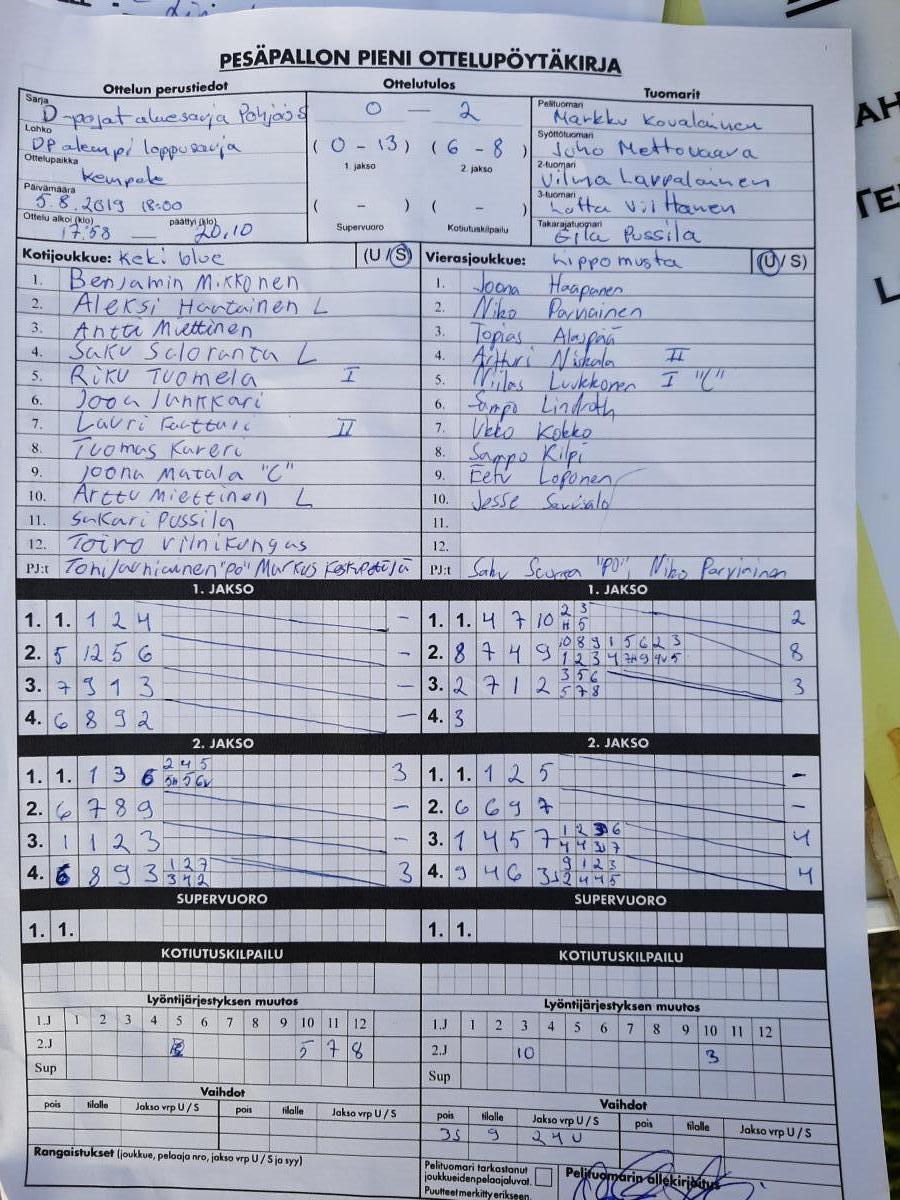 PESÄPALLON PIENI OTTELUPÖYTÄKIRJA
Ottelun perustiedot
Sarja
D-pojat aluesarja Pohjois
Lohko
DP alempi loppusarja
Ottelupaikka
Kempele
Päivämäärä
5.8.2019 18:00
Ottelu alkoi (klo) päättyi (klo)
17:58 — 20.10
Ottelutulos
0 — 2
( 0 - 13 ) ( 6 - 8 )
1. jakso 2. jakso
( - ) ( - )
Supervuoro Kotiutuskilpailu
Tuomarit
Pelituomari
Markku Kovalainen
Syöttötuomari
Juho Mettovaara
2-tuomari
Vilma Lappalainen
3-tuomari
Lotta Viiltanen
Takarajatuomari
Eila Pussila
Kotijoukkue: Keki blue (U/S)
1. Benjamin Mikkonen
2. Aleksi Hautainen L
3. Antti Miettinen
4. Saku Saloranta L
5. Riku Tuomela I
6. Joona Junkkari
7. Lauri II
8. Tuomas Kareri
9. Joona Matala "C"
10. Arttu Miettinen L
11. Sakari Pussila
12. Toivo Vilnikangas
PJ:t "PO" Markus
Vierasjoukkue: Lippo musta (U/S)
1. Joona Haapanen
2. Niko Parviainen
3. Topias Alaspää
4. Artturi Niskala II
5. Niilas Luukkonen I "C"
6. Sampo Lindroth
7. Ukko Kokko
8. Sampo Kilpi
9. Eetu Loponen
10. Jesse Savisalo
11.
12.
PJ:t Saku "PO", Niko Parviainen
1. JAKSO
1. 1. 1 2 4 –
2. 5 12 5 6 –
3. 7 9 1 3 –
4. 6 8 9 2 –
1. JAKSO
2 3
1. 1. 4 7 10 H 5 2
10 8 9 1 5 6 2 3
2. 8 7 4 9 1 2 3 4 7H 9 9v 5 8
3 5 6
3. 2 7 1 2 5 7 8 3
4. 3
2. JAKSO
2 4 5
1. 1. 1 3 6 5H 5 6v 3
2. 6 7 8 9 –
3. 1 1 2 3 –
1 2 7
4. 6 8 9 3 3 4 2 3
2. JAKSO
1. 1. 1 2 5 –
2. 6 6 9 7 –
1 2 3 6
3. 1 4 5 7 4 4 3 7 4
9 1 2 3
4. 9 4 6 3S 2 4 4 5 4
SUPERVUORO
1. 1.
SUPERVUORO
1. 1.
KOTIUTUSKILPAILU
KOTIUTUSKILPAILU
Lyöntijärjestyksen muutos
1.J 1 2 3 4 5 6 7 8 9 10 11 12
2.J 5 7 8
Sup
Lyöntijärjestyksen muutos
1.J 1 2 3 4 5 6 7 8 9 10 11 12
2.J 10 3
Sup
Vaihdot
pois tilalle Jakso vrp U / S pois tilalle Jakso vrp U / S
Vaihdot
pois tilalle Jakso vrp U / S pois tilalle Jakso vrp U / S
3S 9 2 4 U
Rangaistukset (joukkue, pelaaja nro, jakso vrp U / S ja syy)
Pelituomari tarkastanut
joukkueidenpelaajaluvat.
Puutteet merkitty erikseen.
Pelituomarin allekirjoitus